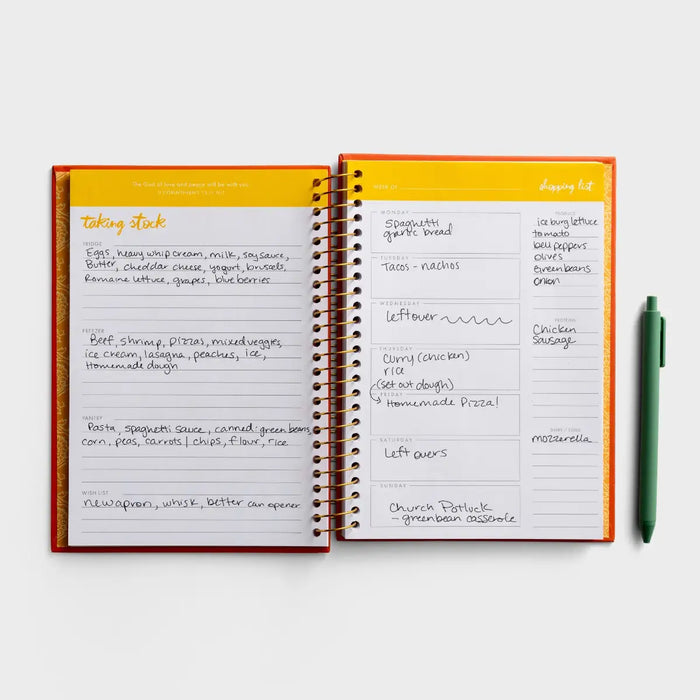 The God of love and peace will be with you.
taking stock
FRIDGE
Eggs, heavy whip cream, milk, soy sauce,
Butter, cheddar cheese, yogurt, brussels,
Romaine lettuce, grapes, blueberries
FREEZER
Beef, shrimp, pizzas, mixed veggies,
ice cream, lasagna, peaches, ice,
Homemade dough
PANTRY
Pasta, spaghetti sauce, canned: green beans
corn, peas, carrots | chips, flour, rice
WISH LIST
new apron, whisk, better can opener
WEEK OF
MONDAY
Spaghetti
garlic bread
TUESDAY
Tacos - nachos
WEDNESDAY
leftover
THURSDAY
Curry (chicken)
rice
(set out dough)
FRIDAY
Homemade Pizza!
SATURDAY
Left overs
SUNDAY
Church Potluck
- greenbean casserole
shopping list
PRODUCE
ice burg lettuce
tomato
bell peppers
olives
Greenbeans
onion
PROTEINS
Chicken
Sausage
mozzerella